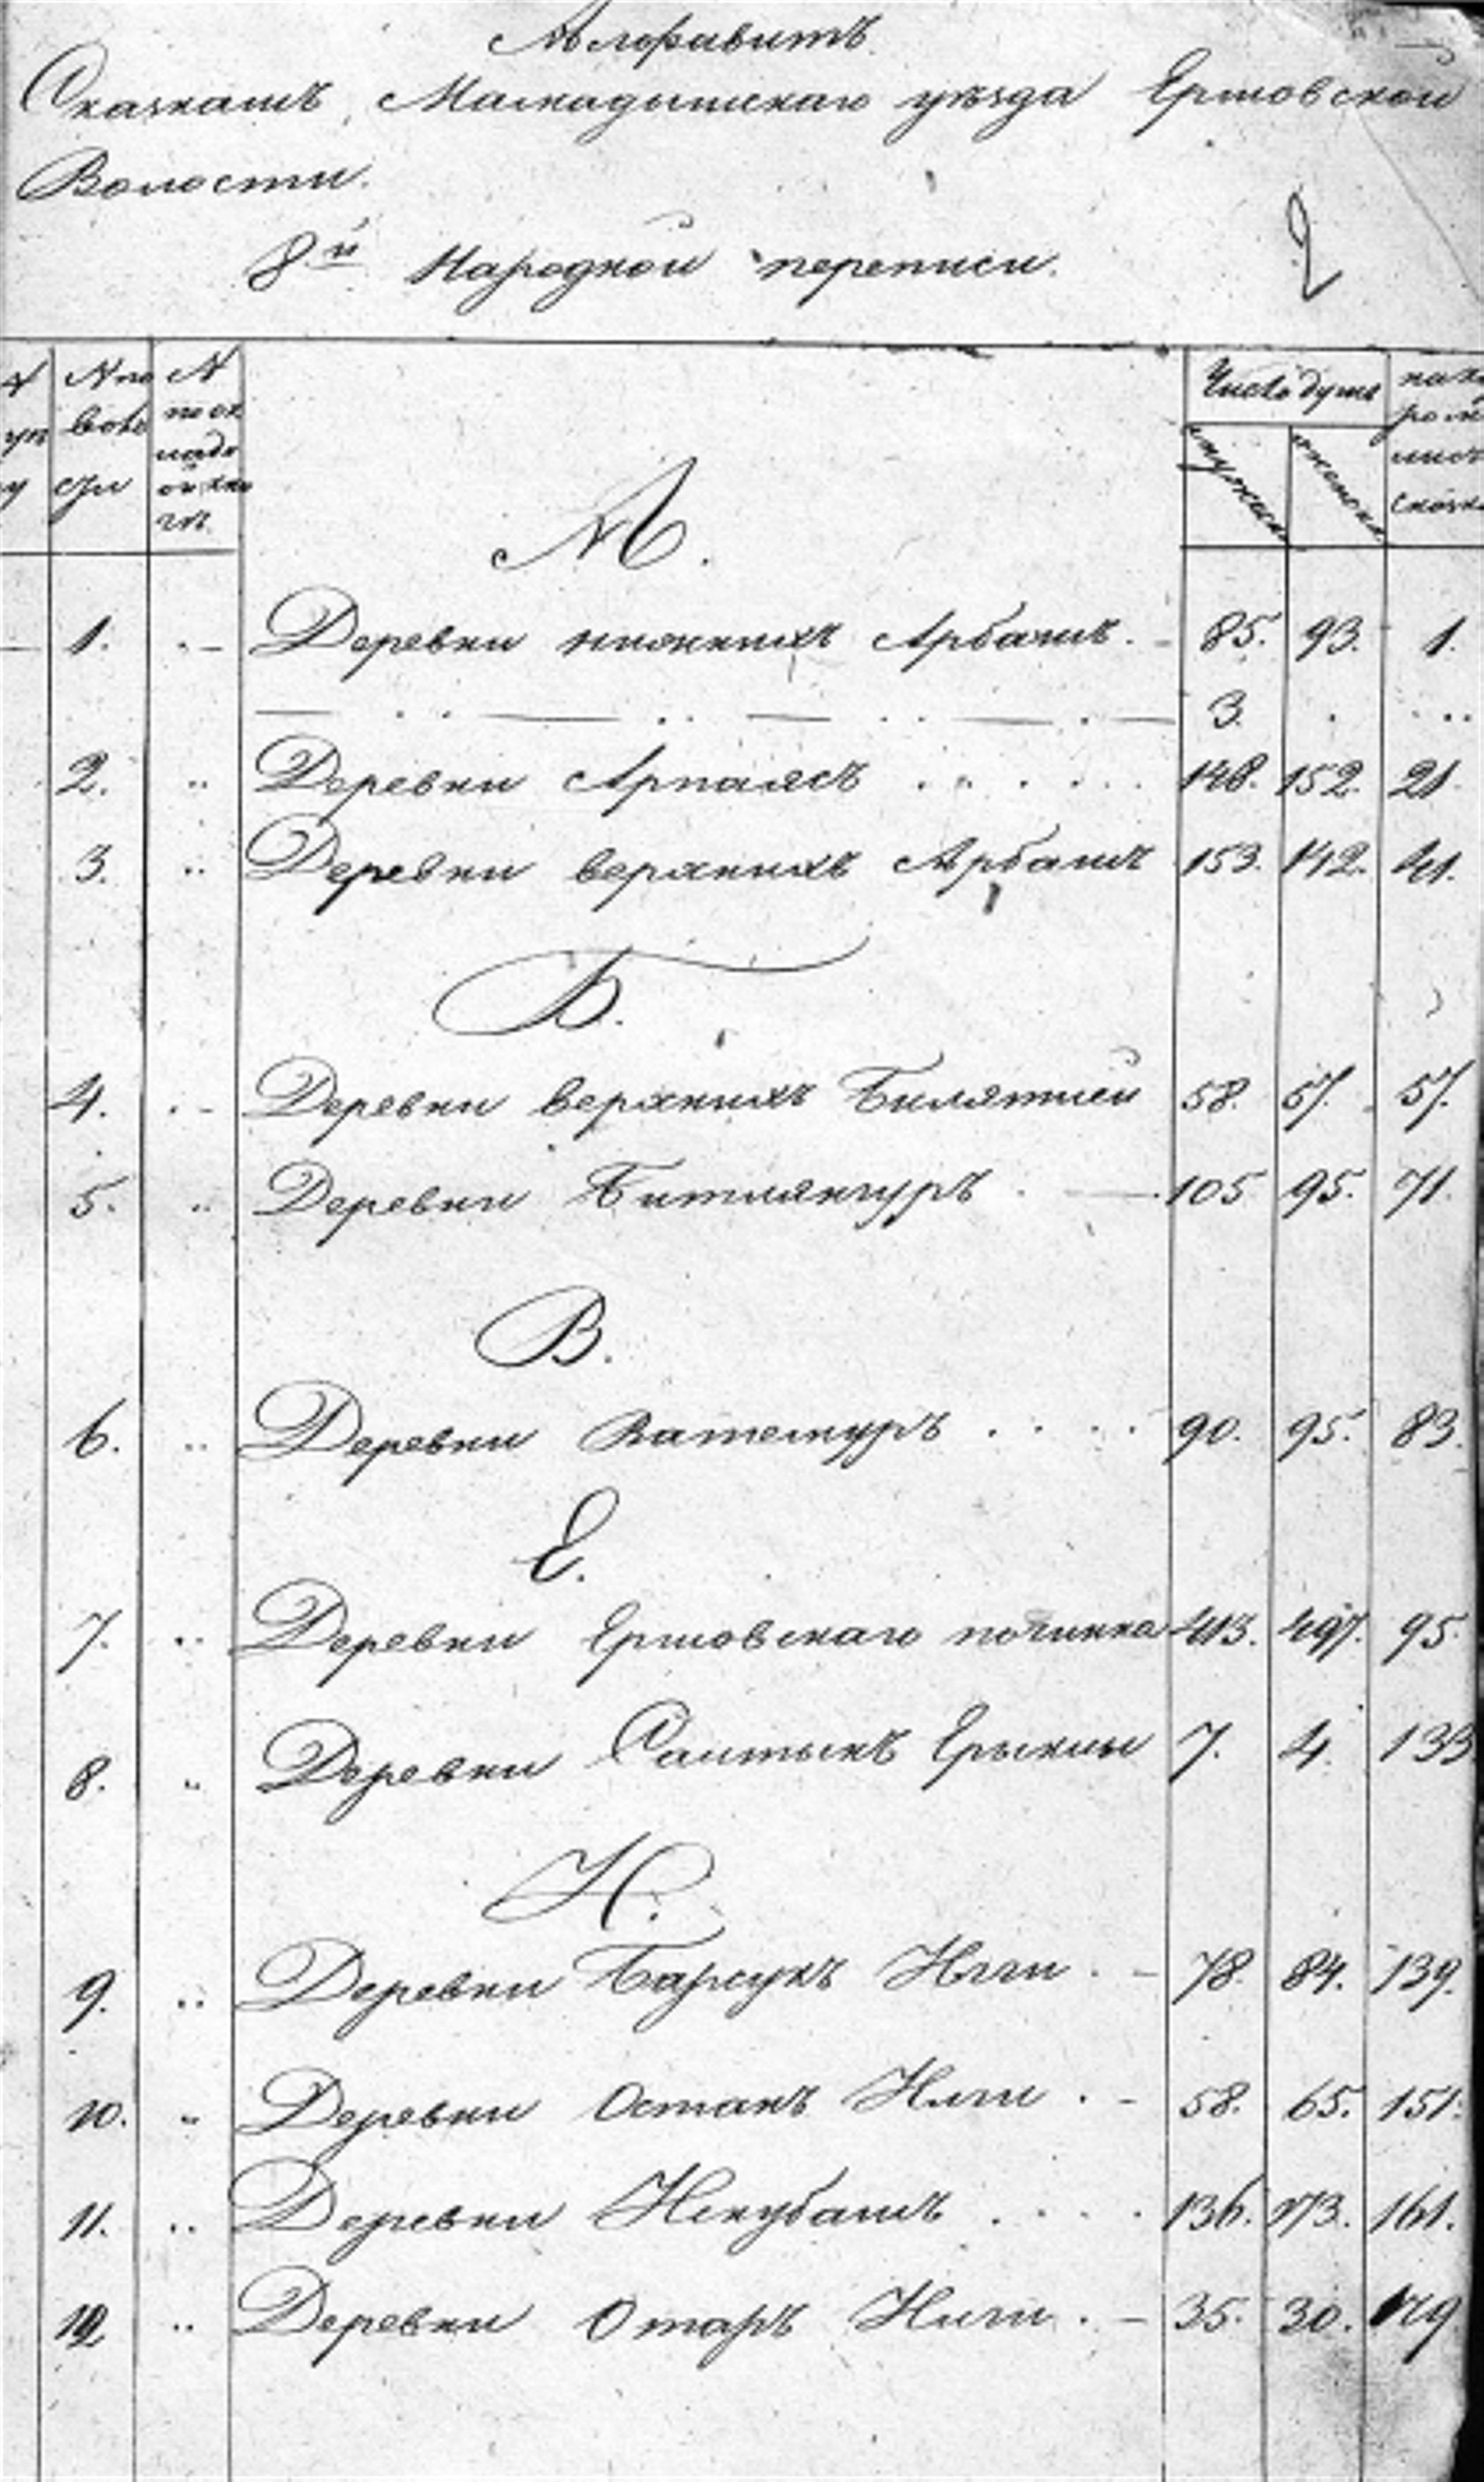 Алфавитъ
Сказкамъ, Мамадышскаго уѣзда Ершовской
Волости.
8й Народной переписи.
2
N N по N Число душъ
ста
мужеска женска
А.
1. Деревни нижнихъ Арбашъ. 85. 93. 1.
3.
2. Деревни Арпаясъ 148. 152. 21.
3. Деревни верхнихъ Арбашъ 153. 142. 41.
Б.
4. Деревни верхнихъ Билятлей 58. 57. 57.
5. Деревни Битлянгуръ 105 95. 71.
В.
6. Деревни Ватемуръ 90. 95. 83.
Е.
7. Деревни Ершовскаго починка 413. 497. 95.
8. Деревни Саитыкъ Ерыксы 7. 4. 133
И.
9. Деревни Барсукъ Илги 78. 84. 139.
10. Деревни Остакъ Илги 58. 65. 151.
11. Деревни Искубашъ 136. 173. 161.
12. Деревни Отаръ Илги 35. 30. 179